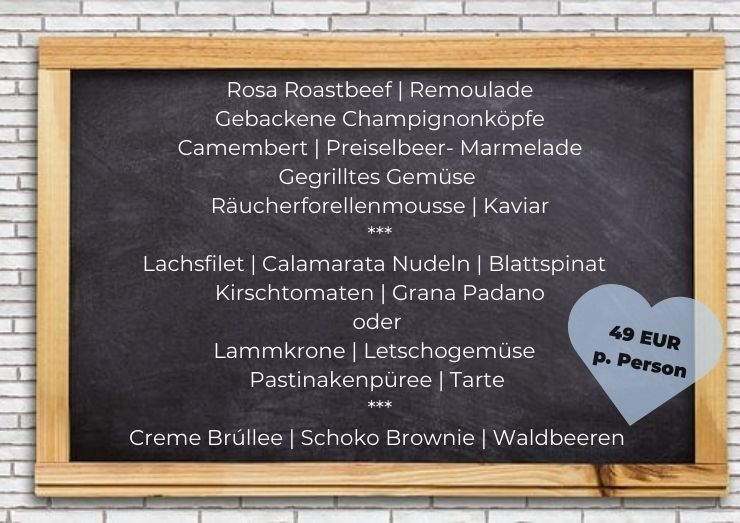 Rosa Roastbeef | Remoulade
Gebackene Champignonköpfe
Camembert | Preiselbeer- Marmelade
Gegrilltes Gemüse
Räucherforellenmousse | Kaviar
***
Lachsfilet | Calamarata Nudeln | Blattspinat
Kirschtomaten | Grana Padano
oder
Lammkrone | Letschogemüse
Pastinakenpüree | Tarte
***
Creme Brúllee | Schoko Brownie | Waldbeeren
49 EUR
p. Person